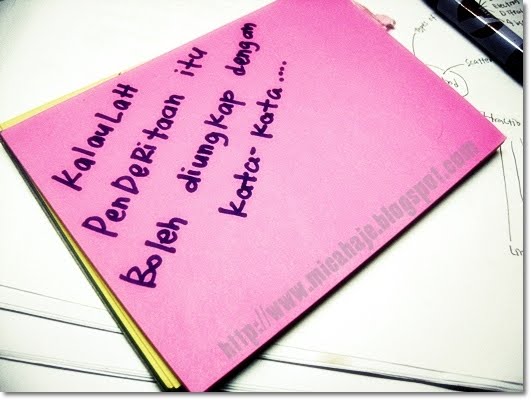 KalauLaH
PenDeRitaan itu
BoLeh diungKap dengan
Kata-Kata....
http://www.micahaje.blogspot.com